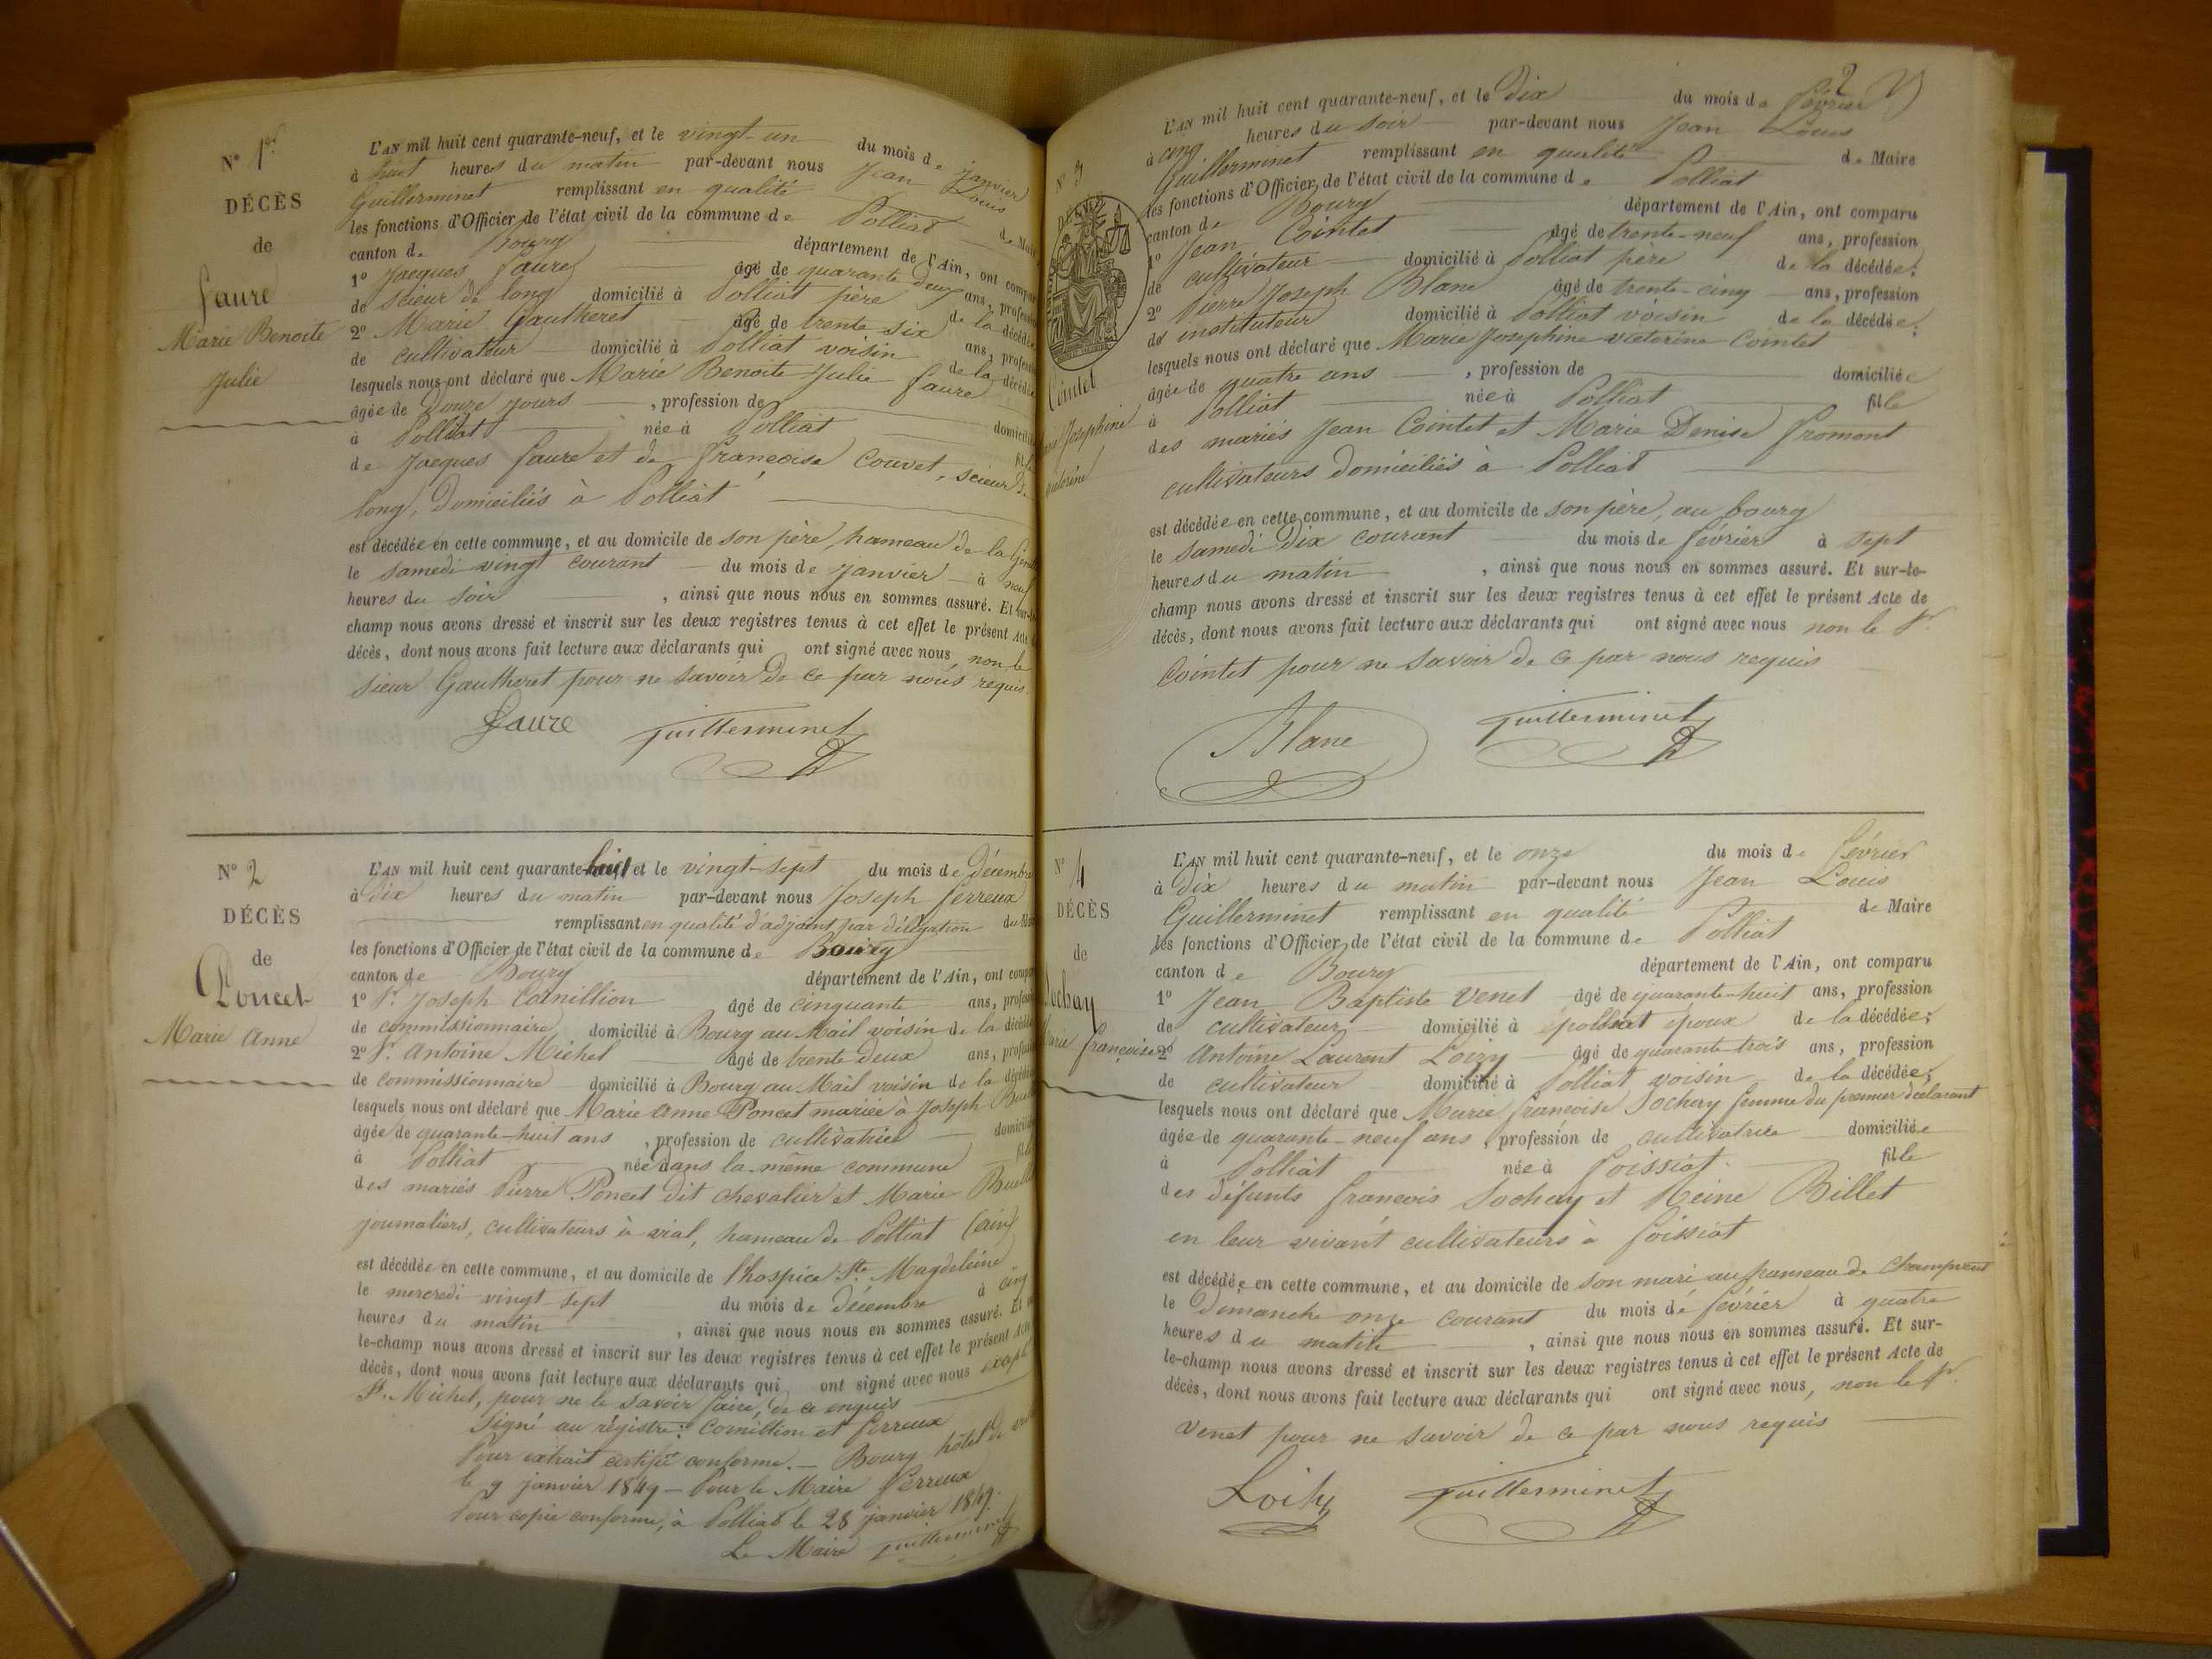 N° 1er
DÉCÈS
de
Faure
Marie Benoite
Julie
L'AN mil huit cent quarante-neuf, et le vingt-un du mois de janvier
à huit heures du matin par-devant nous Jean Louis
Guillerminet remplissant en qualité de Maire
les fonctions d'Officier de l'état civil de la commune de Polliat
canton de Bourg département de l'Ain, ont compar
1° Jacques Faure âgé de quarante deux ans, profession
de scieur de long domicilié à Polliat père de la décédée
2° Marie Gautheret âgé de trente-six ans, profession
de cultivateur domicilié à Polliat voisin de la décédée
lesquels nous ont déclaré que Marie Benoite Julie Faure
âgée de Douze jours , profession de domicilié
à Polliat née à Polliat fille
de Jacques Faure et de Françoise Couvet, scieur de
long, Domiciliés à Polliat
est décédée en cette commune, et au domicile de son père, hameau de la
le samedi vingt courant du mois de janvier à neuf
heures du soir , ainsi que nous nous en sommes assuré. Et sur-le
champ nous avons dressé et inscrit sur les deux registres tenus à cet effet le présent Acte
décès, dont nous avons fait lecture aux déclarants qui ont signé avec nous, non le
sieur Gautheret pour ne savoir de ce par nous requis.
Faure Guillerminet
N° 2
DÉCÈS
de
Poncet
Marie Anne
L'AN mil huit cent quarante-huit et le vingt-sept du mois de Décembre
à Dix heures du matin par-devant nous Joseph Ferreux
remplissant en qualité d'adjoint par délégation du Maire
les fonctions d'Officier de l'état civil de la commune de Bourg
canton de Bourg département de l'Ain, ont compar
1° Sr. Joseph Cornillion âgé de cinquante ans, profession
de commissionnaire domicilié à Bourg au Mail voisin de la décédée
2° Sr. Antoine Michel âgé de trente deux ans, profession
de commissionnaire domicilié à Bourg au Mail voisin de la décédée
lesquels nous ont déclaré que Marie Anne Poncet mariée à Joseph
âgée de quarante-huit ans , profession de cultivatrice domicilié
à Polliat née dans la même commune fille
des mariés Pierre Poncet dit chevalier et Marie
journaliers, cultivateurs à vial, hameau de Polliat (ain)
est décédée en cette commune, et au domicile de l'hospice Ste. Magdeleine
le mercredi vingt-sept du mois de décembre à cinq
heures du matin , ainsi que nous nous en sommes assuré. Et
le-champ nous avons dressé et inscrit sur les deux registres tenus à cet effet le présent Acte
décès, dont nous avons fait lecture aux déclarants qui ont signé avec nous excepté
Sr. Michel, pour ne le savoir faire, de ce enquis
Signé au régistre: Cornillion et Ferreux
Pour extrait certifié conforme. — Bourg hôtel de
le 9 janvier 1849 — Pour le Maire Ferreux
Pour copie conforme, à Polliat le 28 janvier 1849.
Le Maire Guillerminet
2
N° 3
Cointet
Joséphine
L'AN mil huit cent quarante-neuf, et le Dix du mois de Février
à cinq heures du soir par-devant nous Jean Louis
Guillerminet remplissant en qualité de Maire
les fonctions d'Officier de l'état civil de la commune de Polliat
canton de Bourg département de l'Ain, ont comparu
1° Jean Cointet âgé de trente-neuf ans, profession
de cultivateur domicilié à Polliat père de la décédée;
2° Pierre Joseph Blanc âgé de trente-cinq ans, profession
de instituteur domicilié à Polliat voisin de la décédée;
lesquels nous ont déclaré que Marie Josephine victorine Cointet
âgée de quatre ans , profession de domiciliée
à Polliat née à Polliat fille
des mariés Jean Cointet et Marie Denise Fromont
cultivateurs domiciliés à Polliat
est décédée en cette commune, et au domicile de son père, au bourg
le samedi dix courant du mois de février à sept
heures du matin , ainsi que nous nous en sommes assuré. Et sur-le-
champ nous avons dressé et inscrit sur les deux registres tenus à cet effet le présent Acte de
décès, dont nous avons fait lecture aux déclarants qui ont signé avec nous non le Sr.
Cointet pour ne savoir de ce par nous requis
Blanc Guillerminet
N° 4
DÉCÈS
de
Sochay
Marie Françoise
L'AN mil huit cent quarante-neuf, et le onze du mois de Février
à Dix heures du matin par-devant nous Jean Louis
Guillerminet remplissant en qualité de Maire
les fonctions d'Officier de l'état civil de la commune de Polliat
canton de Bourg département de l'Ain, ont comparu
1° Jean Baptiste Venet âgé de quarante-huit ans, profession
de cultivateur domicilié à Polliat époux de la décédée;
2° Antoine Laurent Loizy âgé de quarante-trois ans, profession
de cultivateur domicilié à Polliat voisin de la décédée;
lesquels nous ont déclaré que Marie françoise Sochay femme du premier déclarant
âgée de quarante-neuf ans , profession de cultivatrice domiciliée
à Polliat née à Foissiat fille
des défunts françois Sochay et Reine Billet
en leur vivant cultivateurs à Foissiat
est décédée en cette commune, et au domicile de son mari au hameau de Champvent
le Dimanche onze courant du mois de février à quatre
heures du matin , ainsi que nous nous en sommes assuré. Et sur-
le-champ nous avons dressé et inscrit sur les deux registres tenus à cet effet le présent Acte de
décès, dont nous avons fait lecture aux déclarants qui ont signé avec nous, non le Sr.
Venet pour ne savoir de ce par nous requis
Loisy Guillerminet